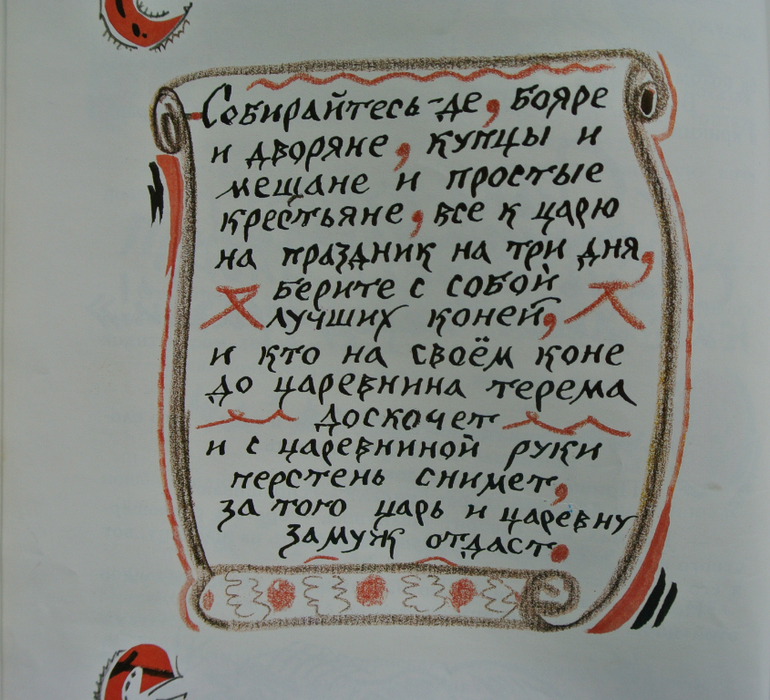 Собирайтесь-де, бояре
и дворяне, купцы и
мещане и простые
крестьяне, все к царю
на праздник на три дня,
берите с собой
лучших коней,
и кто на своём коне
до царевнина терема
доскочет
и с царевниной руки
перстень снимет,
за того царь и царевну
замуж отдаст.